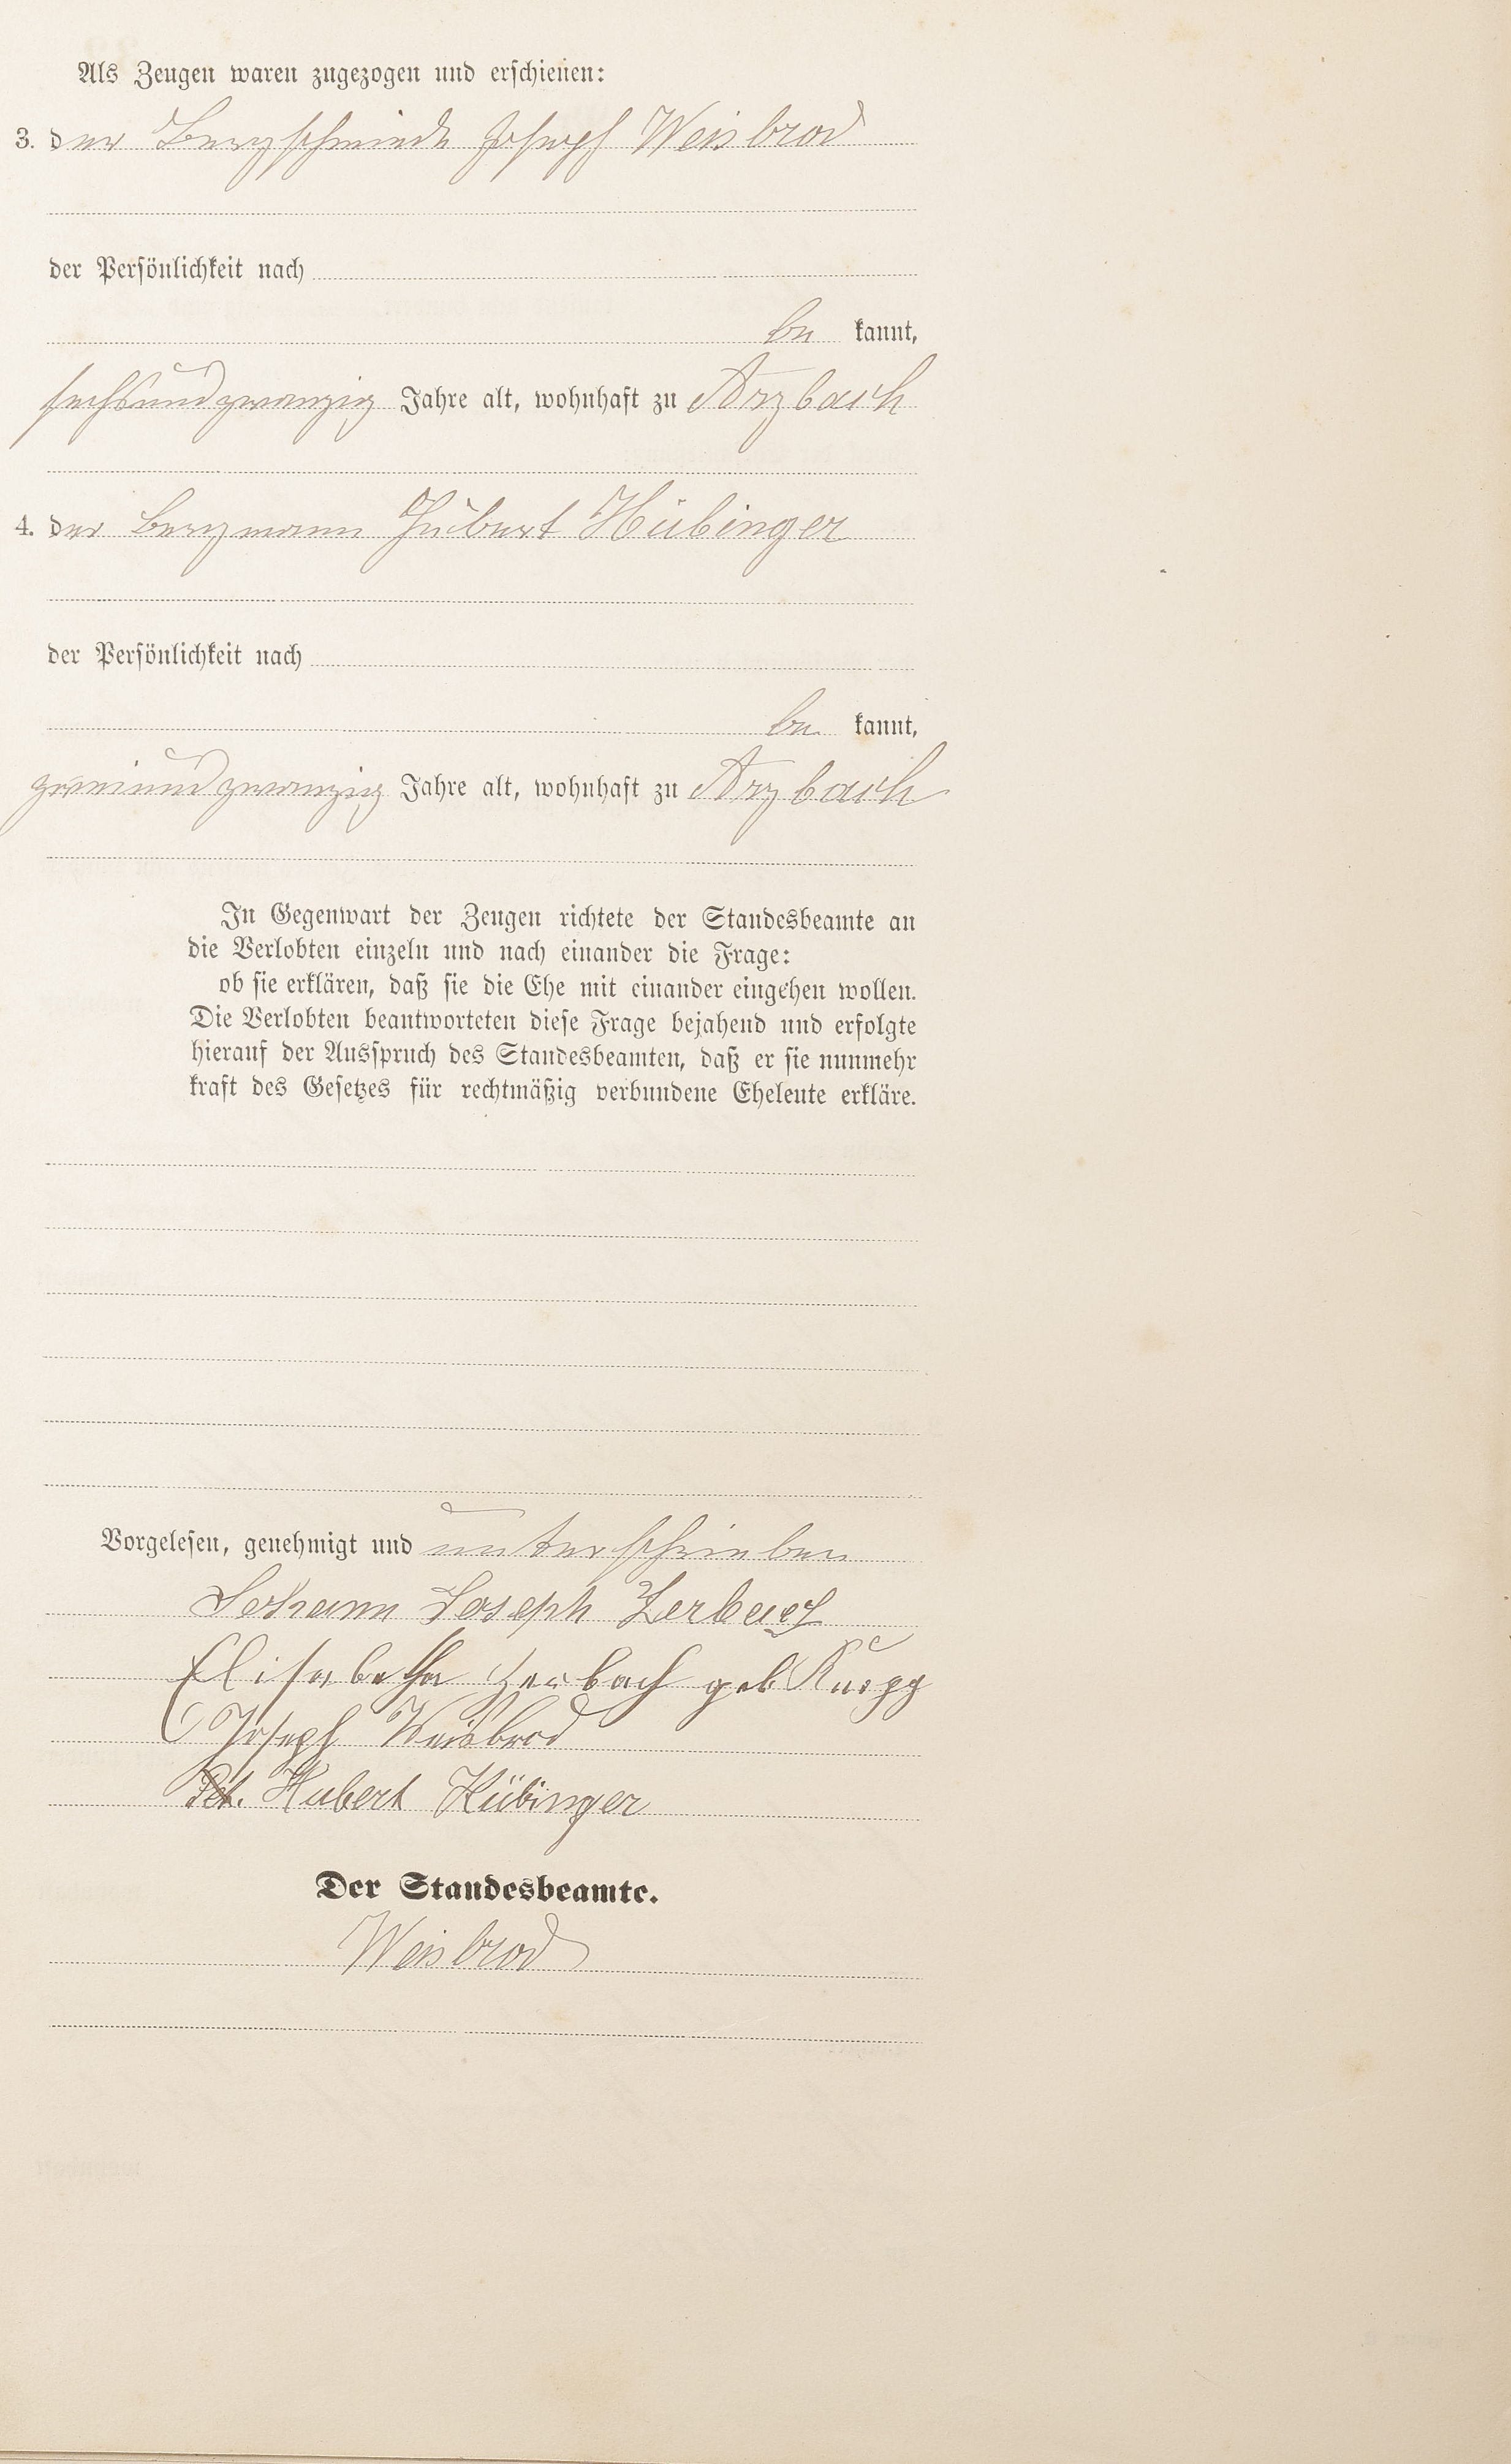 Als Zeugen waren zugezogen und erschienen:
3. der Bergschmiede Joseph Weisbrod
der Persönlichkeit nach
be kannt,
sechsundzwanzig Jahre alt, wohnhaft zu Arzbach
4. der Bergmann Hubert Hübinger
der Persönlichkeit nach
be kannt,
zweiundzwanzig Jahre alt, wohnhaft zu Arzbach
In Gegenwart der Zeugen richtete der Standesbeamte an
die Verlobten einzeln und nach einander die Frage:
ob sie erklären, daß sie die Ehe mit einander eingehen wollen.
Die Verlobten beantworteten diese Frage bejahend und erfolgte
hierauf der Ausspruch des Standesbeamten, daß er sie nunmehr
kraft des Gesetzes für rechtmäßig verbundene Eheleute erkläre.
Vorgelesen, genehmigt und unterschrieben
Johann Joseph Zerbach
Elisabetha Zerbach geb
Joseph Weisbrod
Pet. Hubert Hübinger
Der Standesbeamte.
Weisbrod